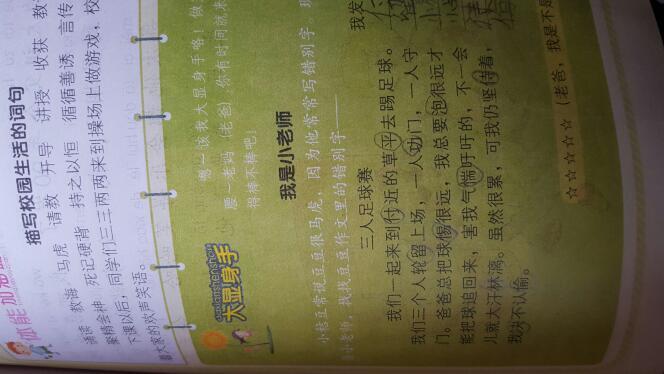 描写校园生活的词句
诵读 教诲 马虎 请教 开导 讲授 收获 教
聚精会神 死记硬背 持之以恒 循循善诱 言传
下课以后，同学们三三两两来到操场上做游戏，校
着大家的欢声笑语。
daxianshenshou
大显身手
想一该我大显身手咯！做
腰一老妈（老爸），你有时间就来
得棒不棒吧！
我是小老师
小慧豆常说豆豆很马虎，因为他常常写错别字
当小老师，找找豆豆作文里的错别字——
我发
三人足球赛
我们一起来到付近的草平去踢足球。
我们三个人轮留上场，一人功门，一人守
门。爸爸总把球惕很远，我总要泡很远才
能把球追回来，害我气喘吁吁的，不一会
儿就大汗林漓。虽然很累，可我仍坚侍着，
我决不认愉。
☆☆☆☆☆（老爸，我是不是